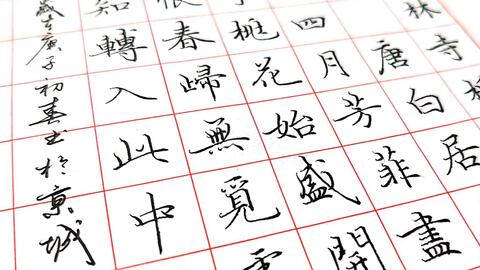 林寺
唐白居
四月芳菲盡
桃花始盛開
春歸無覓
知轉入此中
歲在庚子初春书於京城